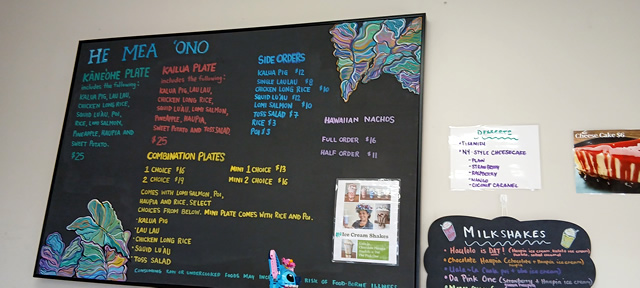 HE MEA 'ONO
KĀNEOHE PLATE
includes the following:
KALUA PIG, LAU LAU,
CHICKEN LONG RICE,
SQUID LU'AU, POI,
RICE, LOMI SALMON,
PINEAPPLE, HAUPIA AND
SWEET POTATO.
$25
KAILUA PLATE
includes the following:
KALUA PIG, LAU LAU,
CHICKEN LONG RICE,
SQUID LU'AU, LOMI SALMON,
PINEAPPLE, HAUPIA,
SWEET POTATO AND TOSS SALAD
$25
SIDE ORDERS
KALUA PIG $12
SINGLE LAULAU $8
CHICKEN LONG RICE $10
SQUID LU'AU $12
LOMI SALMON $10
TOSS SALAD $7
RICE $3
POI $3
HAWAIIAN NACHOS
FULL ORDER $16
HALF ORDER $11
COMBINATION PLATES
1 CHOICE $16 MINI 1 CHOICE $13
2 CHOICE $19 MINI 2 CHOICE $16
COMES WITH LOMI SALMON, POI,
HAUPIA AND RICE, SELECT
CHOICES FROM BELOW. MINI PLATE COMES WITH RICE AND POI.
• KALUA PIG
• LAU LAU
• CHICKEN LONG RICE
• SQUID LU'AU
• TOSS SALAD
CONSUMING RAW OR UNDERCOOKED FOODS MAY RISK OF FOOD-BORNE ILLNESS
Ice Cream Shakes
DESSERTS
• TIRAMISU
• NY STYLE CHEESECAKE
- PLAIN
- STRAWBERRY
- RASPBERRY
- MANGO
- COCONUT CARAMEL
Cheese Cake $6
MILKSHAKES
• Chocolate Haupia
• Da Pink One